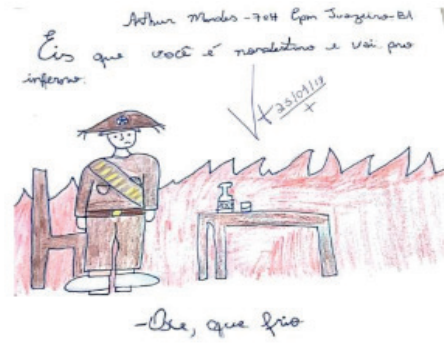 Arthur Mendes - 7ºH Cpm Juazeiro-BA
Eis que você é nordestino e vai pro
inferno:
25/09/18
-Oxe, que frio